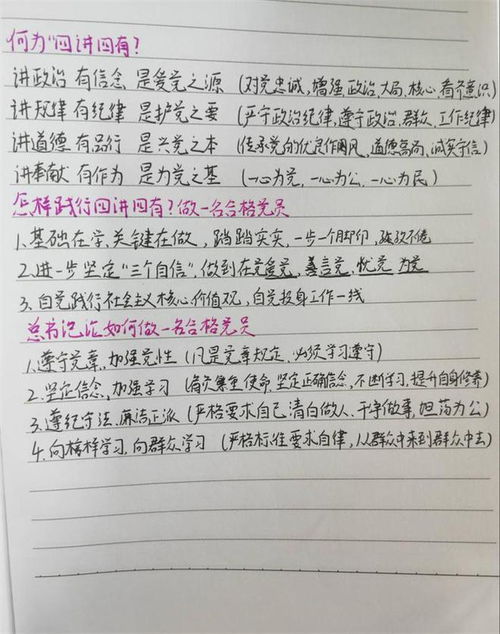 何为“四讲四有?
讲政治 有信念 是爱党之源 (对党忠诚,增强政治、大局、核心、看齐意识)
讲规律 有纪律 是护党之要 (严守政治纪律,遵守政治、群众、工作纪律)
讲道德 有品行 是兴党之本 (传承党的优良作风,道德高尚,诚实守信)
讲奉献 有作为 是为党之基 (一心为党,一心为公,一心为民)
怎样践行四讲四有?做一名合格党员
1.基础在学,关键在做,踏踏实实,一步一个脚印,孜孜不倦
2.进一步坚定“三个自信”,做到在党爱党,言党,忧党 为党
3.自觉践行社会主义核心价值观,自觉投身工作一线
总书记论如何做一名合格党员
1.遵守党章,加强党性 (凡是党章规定,必须学习遵守)
2.坚定信念,加强学习 (肩负重使命 坚定正确信念,不断学习,提升自身修养)
3.遵纪守法,廉洁正派 (严格要求自己,清白做人,干净做事,坦荡为公)
4.向榜样学习,向群众学习 (严格标准要求自律,从群众中来到群众中去)